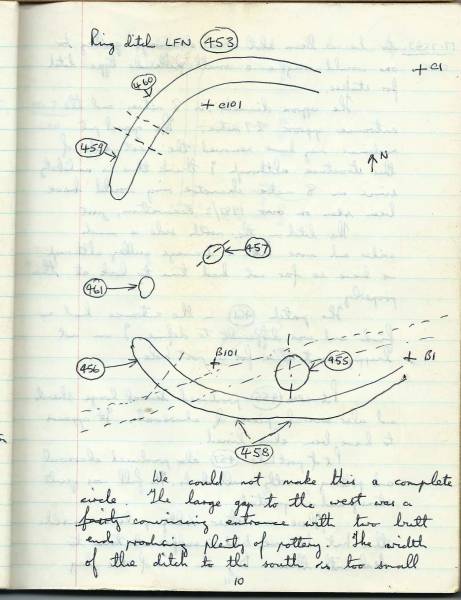 Ring ditch LFN 453
C1
460
C101
459
N
457
461
B101
455
B1
456
458
We could not make this a complete
circle. The large gap to the west was a
fairly convincing entrance with two butt
ends producing plenty of pottery. The width
of the ditch to the south is too small
10